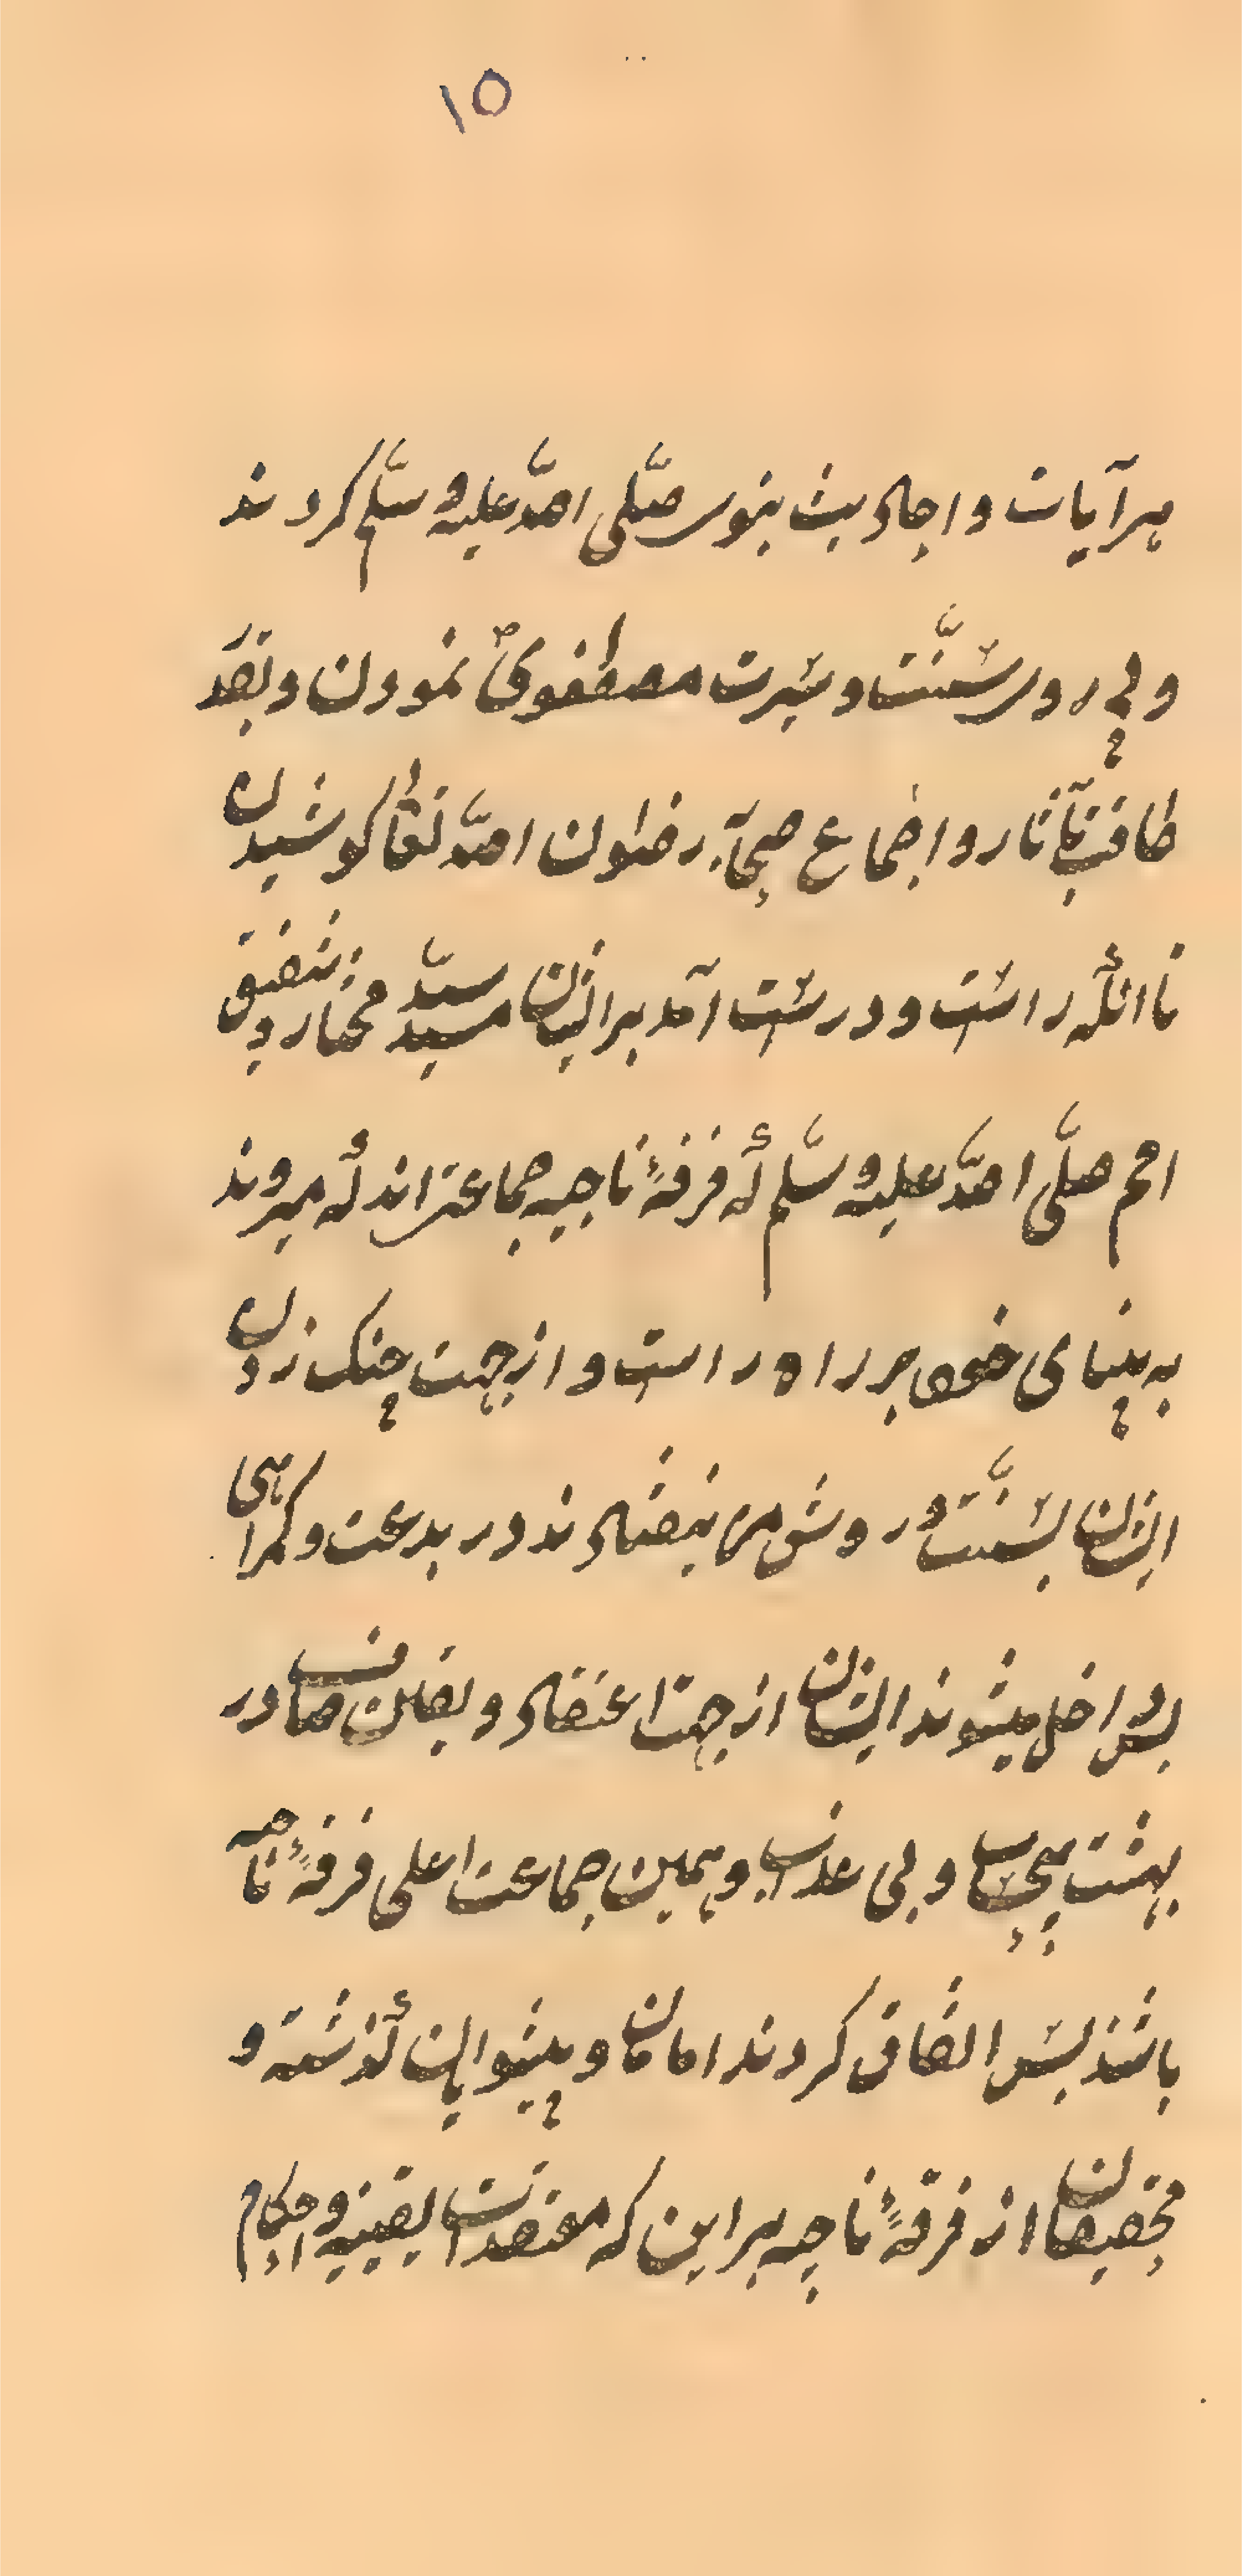 ۱۵
بر آیات و احادیث نبوی صلّی الله علیه و سلّم کردند
و پی روی سنّت و سیرت مصطفوی نمودن و بقدر
طاقت بآثار و اجماع صحابه رضوان الله تعالی کوشیدن
تا انکه راست و درست آمد بر ایشان سید سیّد مختار و شفیق
امم صلّی الله علیه و سلّم که فرقهٔ ناجیه جماعتی اند که میروند
به بینای خود بر راه راست و از جهت چنک زدن
ایشان بسنّت و روش من نیفتادند در بدعت و کمراهی
پس داخل میشوند ایشان از جهت اعتقاد و بقلب صاف در
بهشت بیحساب و بی عذاب و همین جماعت اعلی فرقهٔ ناجیه
باشند پس اتفاق کردند امامان و پیشوایان کذشته و
محققان از فرقهٔ ناجیه بر این که معتقدات یقینیه و احکام